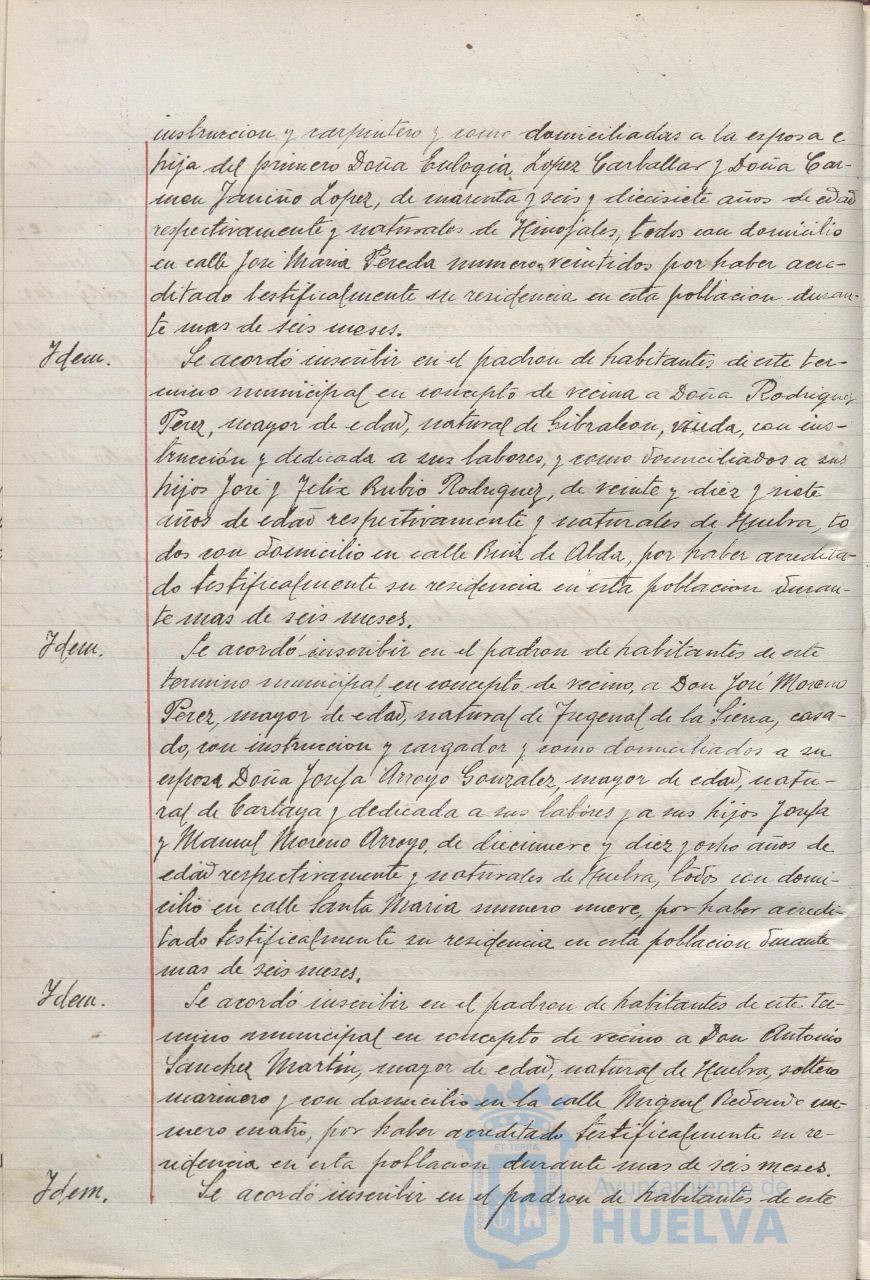 instruccion y carpintero y como domiciliadas a la esposa e
hija del primero Doña Eulogia Lopez Carballar y Doña Car-
men Janiño Lopez, de cuarenta y seis y diecisiete años de edad
respectivamente y naturales de Hinojales, todos con domicilio
en calle José Maria Pereda numero veintidos por haber acre-
ditado testificalmente su residencia en esta poblacion duran-
te mas de seis meses.
Idem. Se acordó inscribir en el padron de habitantes de este ter-
mino municipal en concepto de vecina a Doña Rodriguez
Perez, mayor de edad, natural de Gibraleon, viuda, con ins-
trucción y dedicada a sus labores, y como domiciliados a sus
hijos José y Felix Rubio Rodriguez, de veinte y diez y siete
años de edad respectivamente y naturales de Huelva, to
dos con domicilio en calle Ruiz de Alda, por haber acredita-
do testificalmente su residencia en esta poblacion duran-
te mas de seis meses.
Idem. Se acordó inscribir en el padron de habitantes de este
termino municipal en concepto de vecino, a Don José Moreno
Perez, mayor de edad, natural de Fregenal de la Sierra, casa-
do, con instruccion y cargador y como domiciliados a su
esposa Doña Josefa Arroyo Gonzalez, mayor de edad, natu-
ral de Cartaya y dedicada a sus labores y a sus hijos Josefa
y Manuel Moreno Arroyo, de diecinueve y diez y ocho años de
edad respectivamente y naturales de Huelva, todos con domi-
cilio en calle Santa Maria numero nueve, por haber acredi-
tado testificalmente su residencia en esta poblacion durante
mas de seis meses.
Idem. Se acordó inscribir en el padron de habitantes de este ter-
mino municipal en concepto de vecino a Don Antonio
Sanchez Martin, mayor de edad, natural de Huelva, soltero
marinero y con domicilio en la calle Miguel Redondo nu-
mero cuatro, por haber acreditado testificalmente su re-
sidencia en esta poblacion durante mas de seis meses.
Idem. Se acordó inscribir en el padron de habitantes de este
Ayuntamiento de
HUELVA